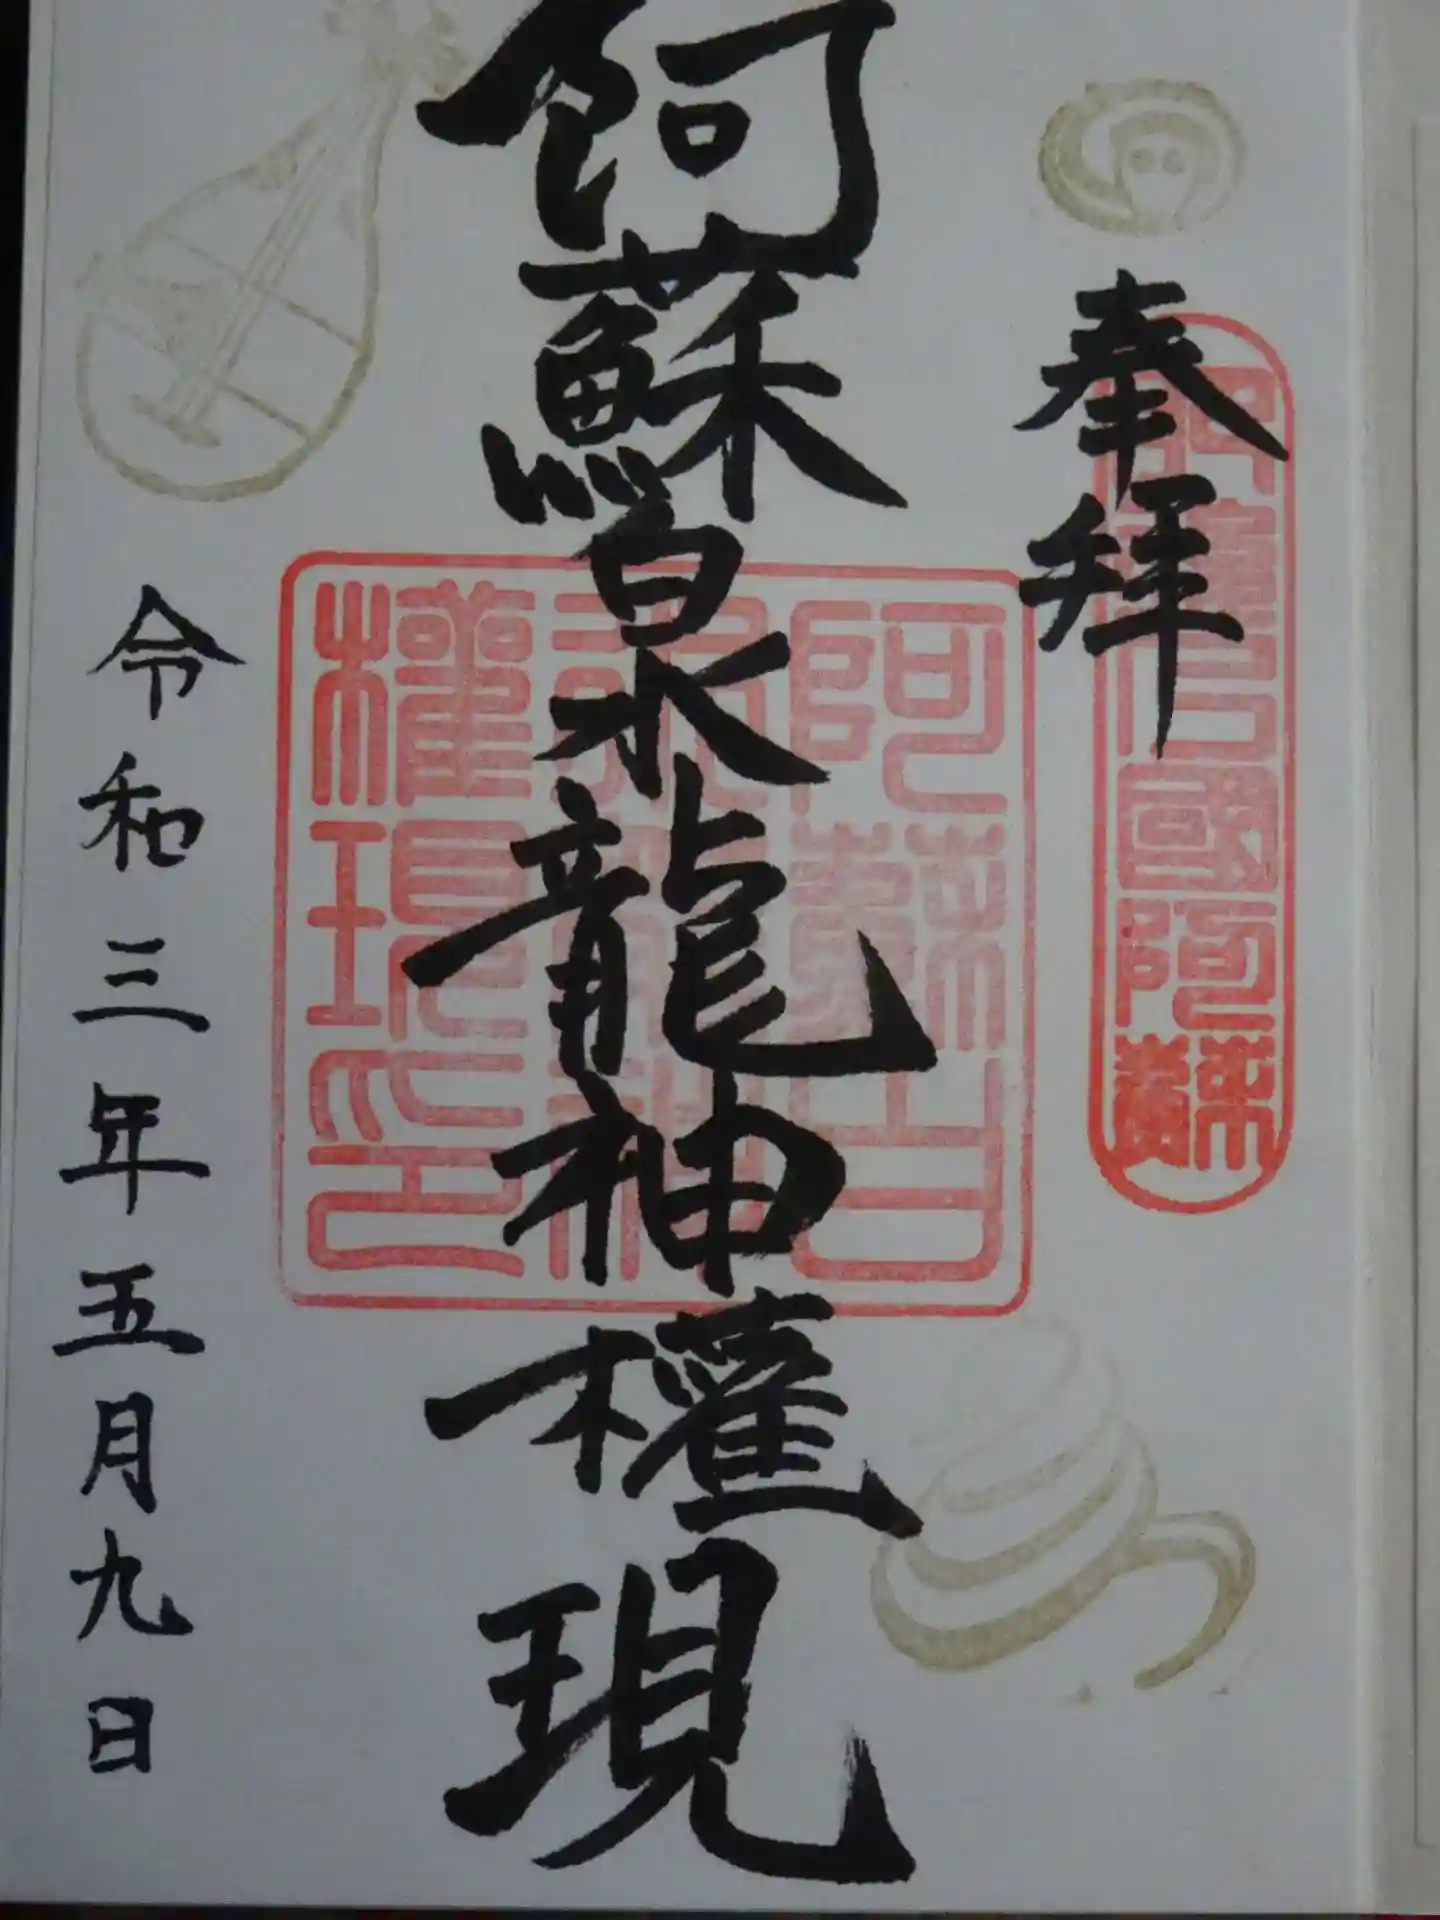 奉拝
肥後國阿蘇
阿蘇白水龍神權現
阿蘇白
水龍神
權現印
令和三年五月九日